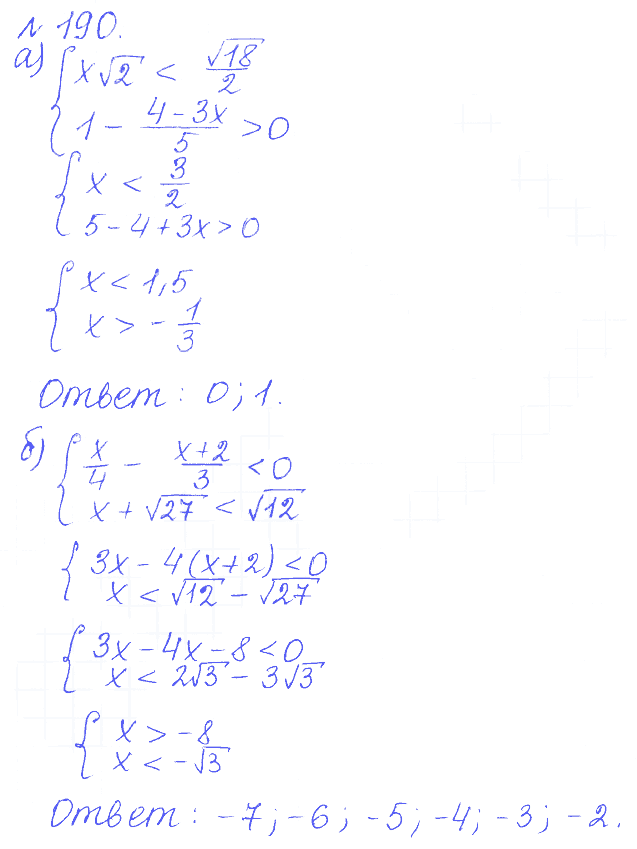 № 190.
а) { x√2 < √18/2
1 - (4-3x)/5 > 0
{ x < 3/2
5-4+3x>0
{ x < 1,5
x > -1/3
Ответ: 0; 1.
б) { x/4 - (x+2)/3 < 0
x + √27 < √12
{ 3x - 4(x+2) < 0
x < √12 - √27
{ 3x - 4x - 8 < 0
x < 2√3 - 3√3
{ x > -8
x < -√3
Ответ: -7; -6; -5; -4; -3; -2.